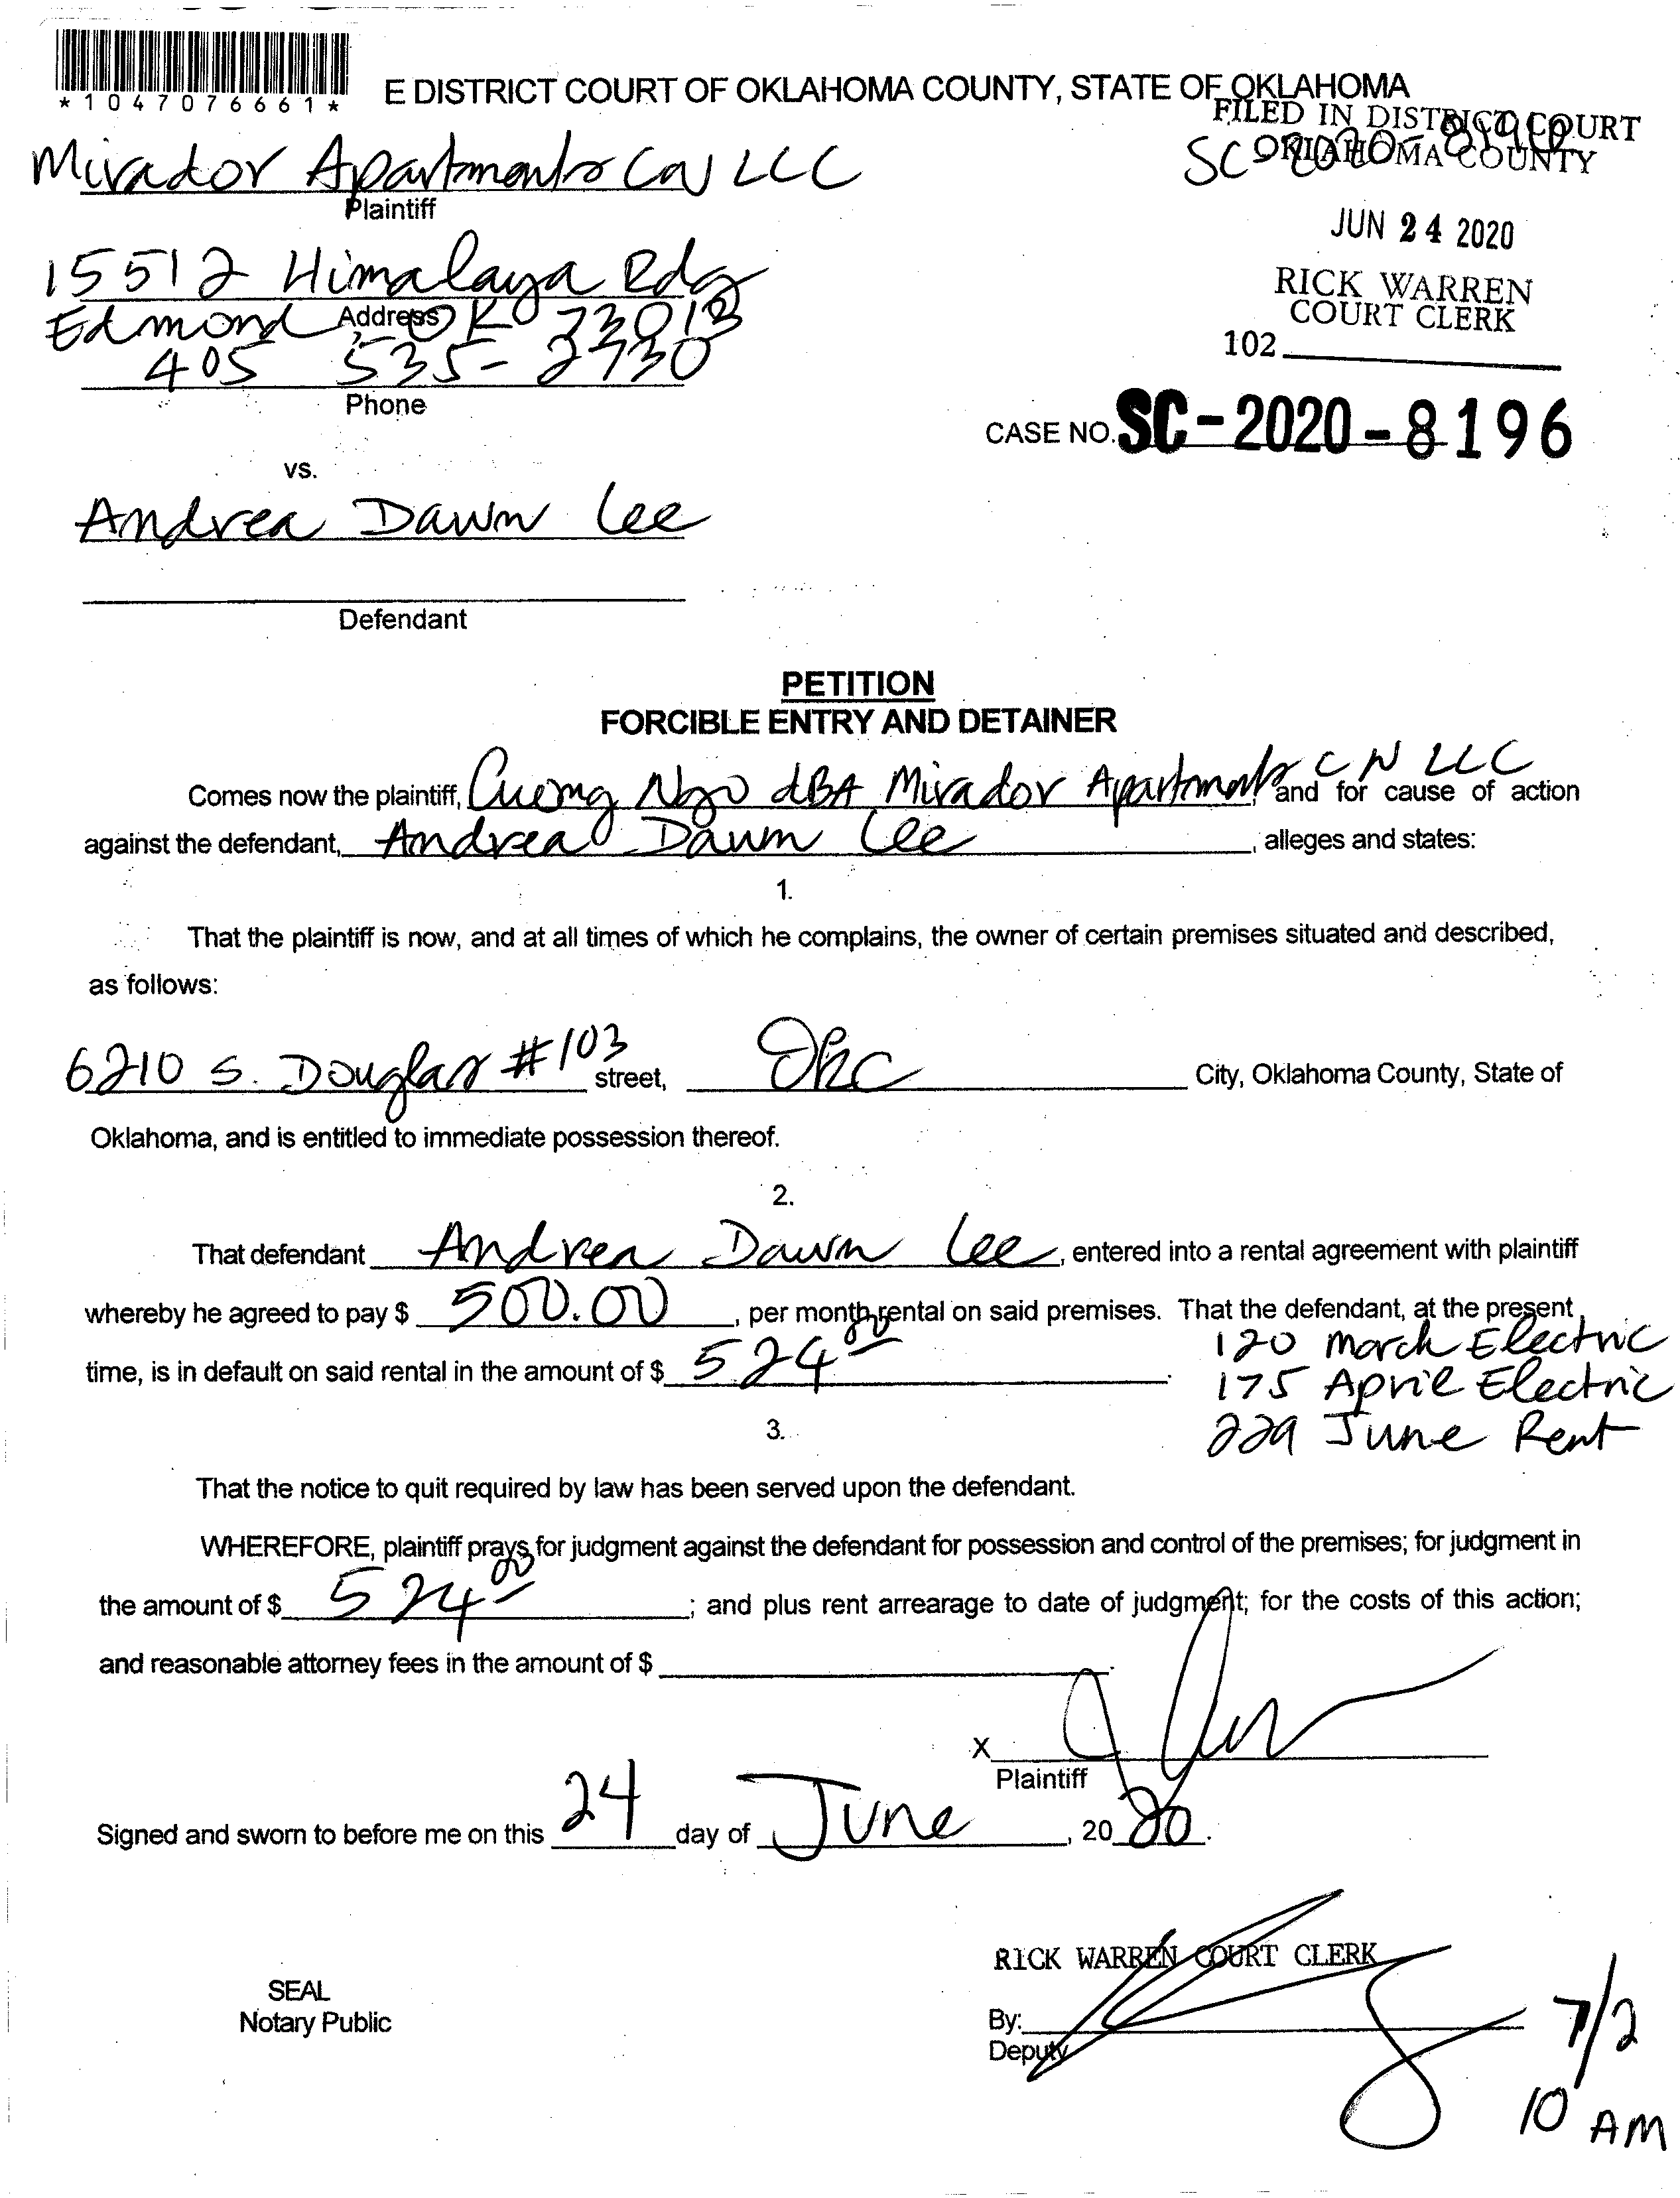 *1047076661*
E DISTRICT COURT OF OKLAHOMA COUNTY, STATE OF OKLAHOMA
FILED IN DISTRICT COURT
OKLAHOMA COUNTY
SC-2020-8196
Mirador Apartments CN LLC
Plaintiff
JUN 24 2020
15512 Himalaya Rdg
RICK WARREN
COURT CLERK
Edmond, OK 73013
Address
102
405 535-2730
Phone
CASE NO. SC-2020-8196
vs.
Andrea Dawn Lee
Defendant
PETITION
FORCIBLE ENTRY AND DETAINER
Comes now the plaintiff, Cuong Ngo dBA Mirador Apartments CN LLC and for cause of action
against the defendant, Andrea Dawn Lee, alleges and states:
1.
That the plaintiff is now, and at all times of which he complains, the owner of certain premises situated and described,
as follows:
6210 S. Douglas #103 street, OKC City, Oklahoma County, State of
Oklahoma, and is entitled to immediate possession thereof.
2.
That defendant Andrea Dawn Lee, entered into a rental agreement with plaintiff
whereby he agreed to pay $ 500.00, per month rental on said premises. That the defendant, at the present
time, is in default on said rental in the amount of $ 524 00.
120 March Electric
175 April Electric
229 June Rent
3.
That the notice to quit required by law has been served upon the defendant.
WHEREFORE, plaintiff prays for judgment against the defendant for possession and control of the premises; for judgment in
the amount of $ 524 00; and plus rent arrearage to date of judgment; for the costs of this action;
and reasonable attorney fees in the amount of $
X
Plaintiff
Signed and sworn to before me on this 24 day of June, 2020.
RICK WARREN COURT CLERK
SEAL
Notary Public
By:
Deputy
7/2
10 AM